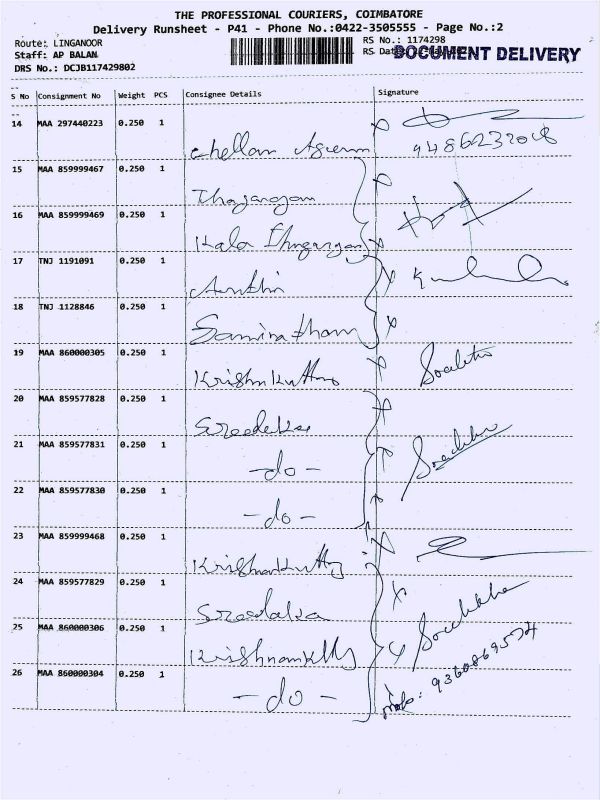 THE PROFESSIONAL COURIERS, COIMBATORE
Delivery Runsheet - P41 - Phone No.:0422-3505555 - Page No.:2
Route: LINGANOOR
RS No.: 1174298
Staff: AP BALAN
RS Date
DOCUMENT DELIVERY
DRS No.: DCJB117429802
S No Consignment No Weight PCS Consignee Details Signature
14 MAA 297440223 0.250 1
15 MAA 859999467 0.250 1
Thajarajan
16 MAA 859999469 0.250 1
Kala
17 TNJ 1191091 0.250 1
18 TNJ 1128846 0.250 1
Saminathan
19 MAA 860000305 0.250 1
Krishnkutty
20 MAA 859577828 0.250 1
21 MAA 859577831 0.250 1
- do -
22 MAA 859577830 0.250 1
- do -
23 MAA 859999468 0.250 1
Krishnankutty
24 MAA 859577829 0.250 1
25 MAA 860000306 0.250 1
26 MAA 860000304 0.250 1
- do -